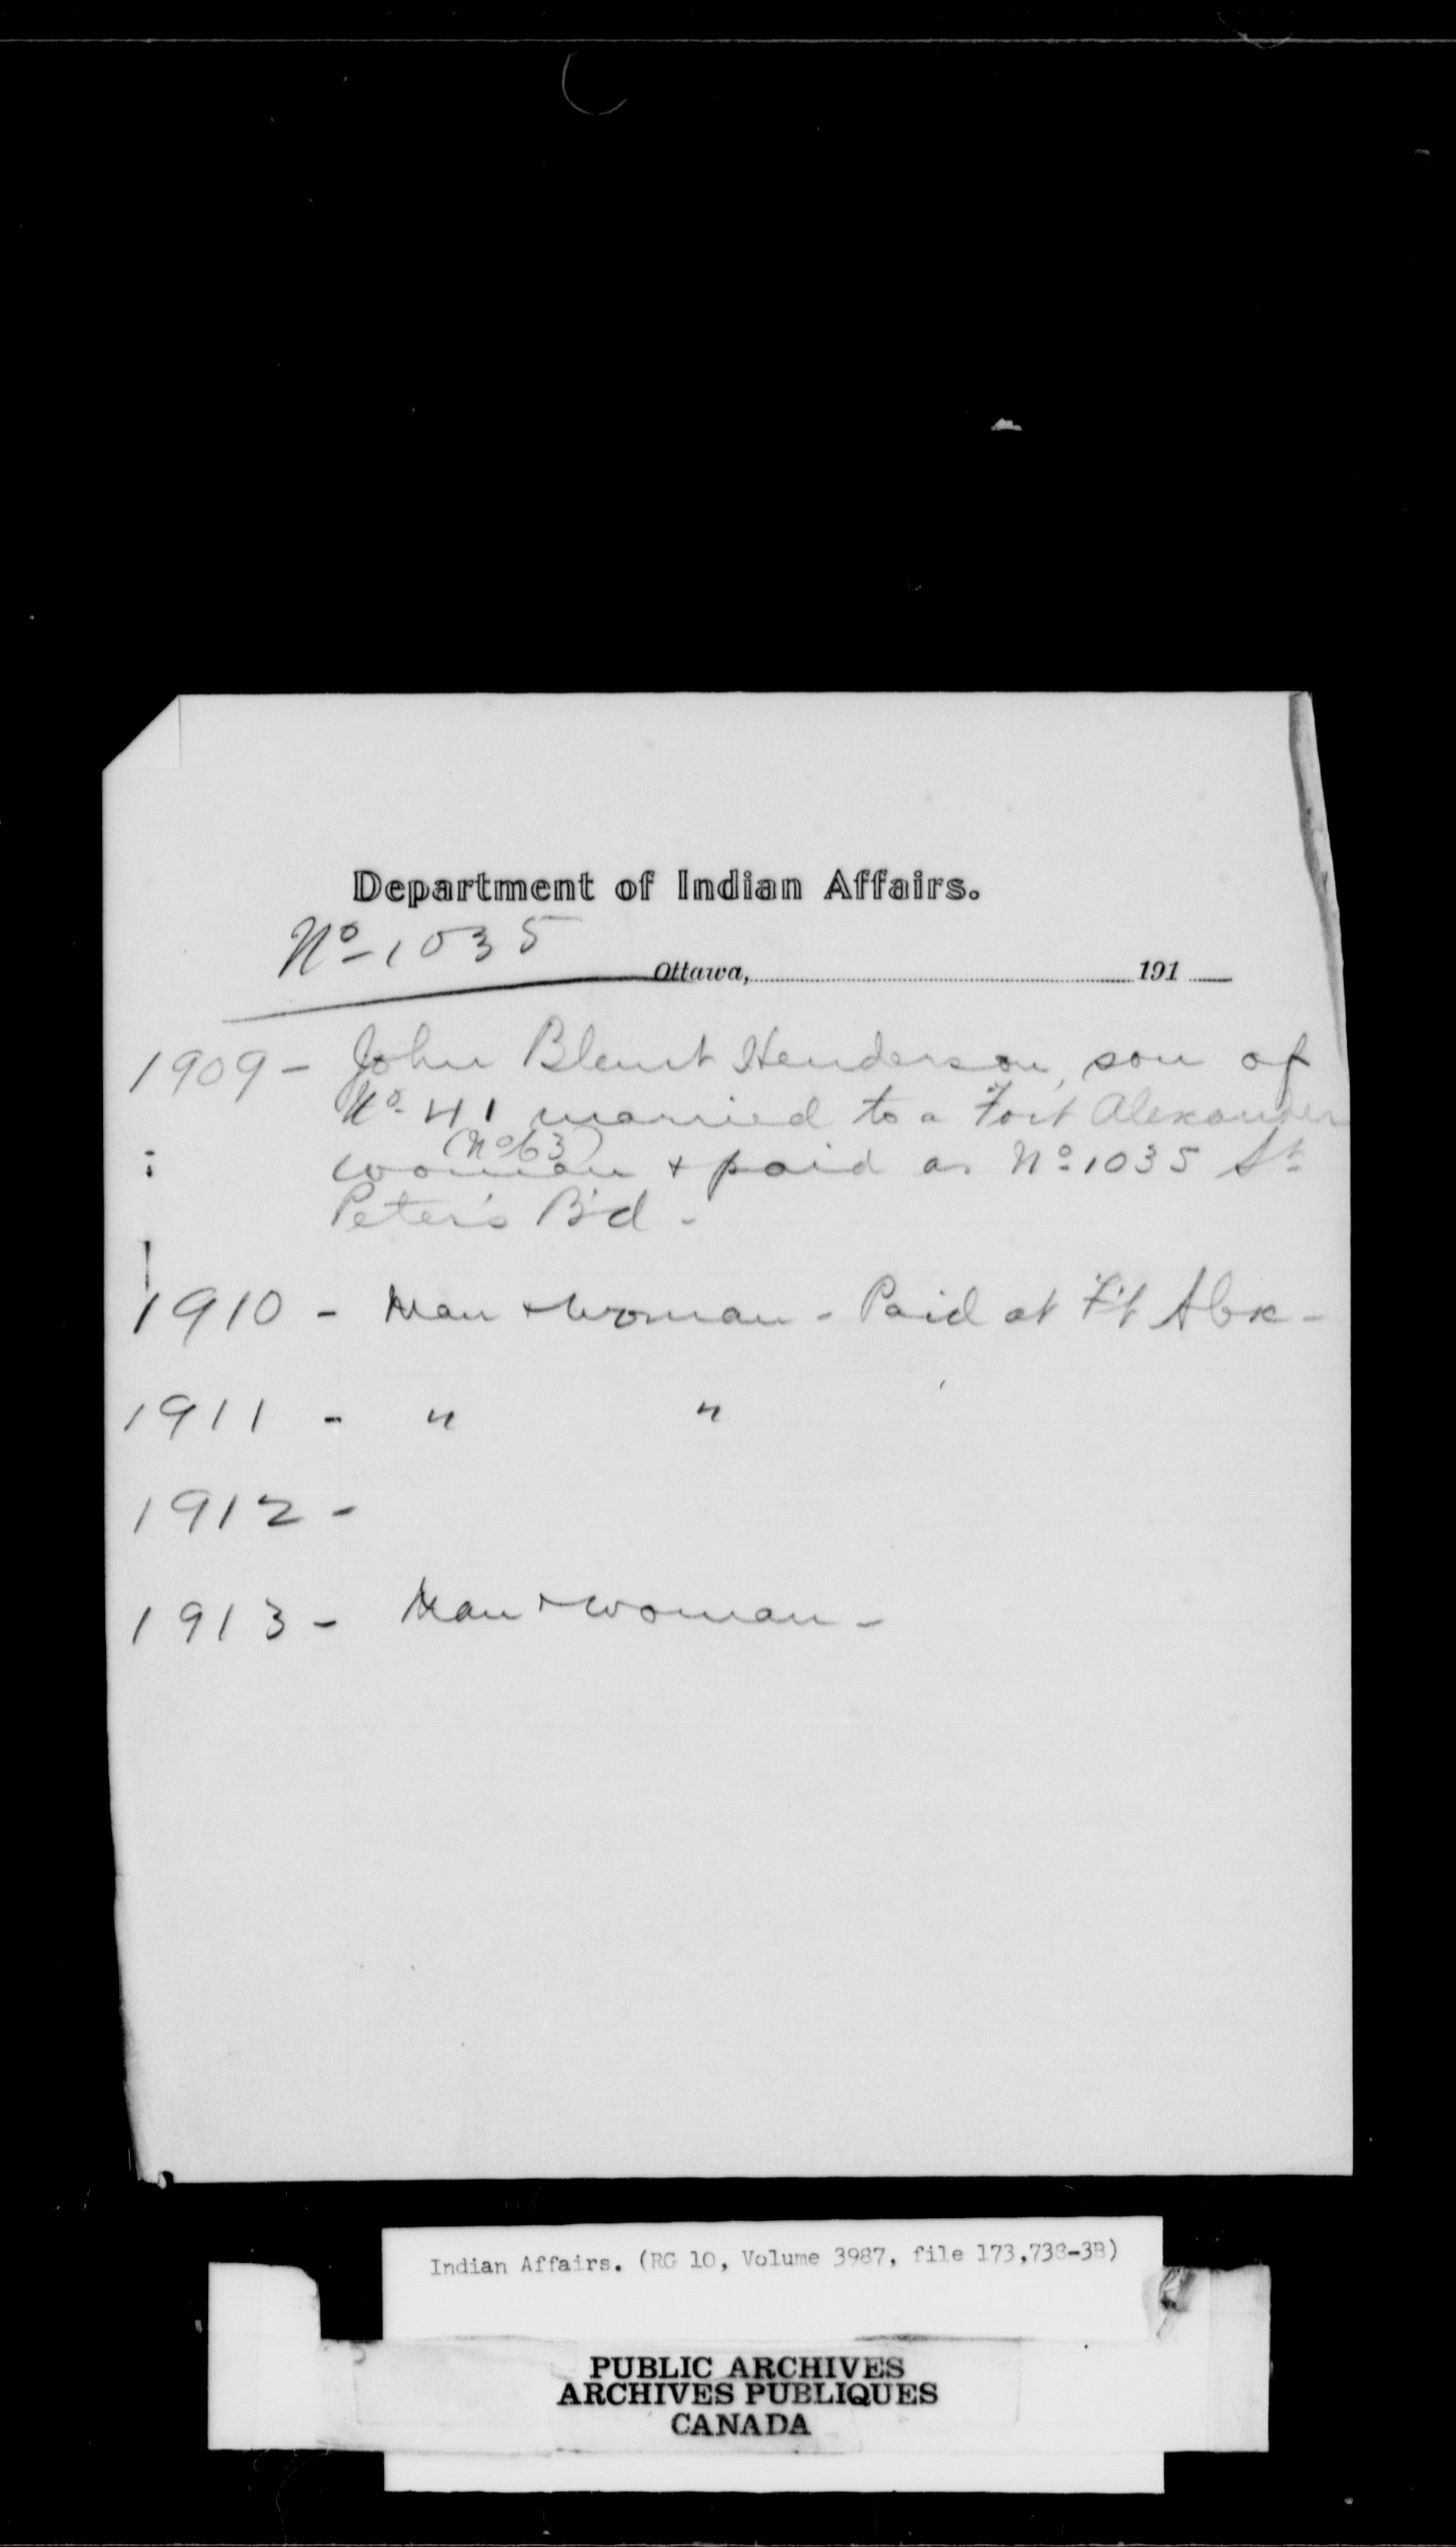 Department of Indian Affairs.
No 1035
Ottawa, 191
1909 - John Henderson, son of
No 41 married to a Fort Alexander
(No 63)
woman + paid as No 1035 St
Peter's B'd -
1910 - Man + woman - Paid at Ft Alex -
1911 - " "
1912 -
1913 - Man + woman -
Indian Affairs. (RG 10, Volume 3987, file 173,738-3B)
PUBLIC ARCHIVES
ARCHIVES PUBLIQUES
CANADA